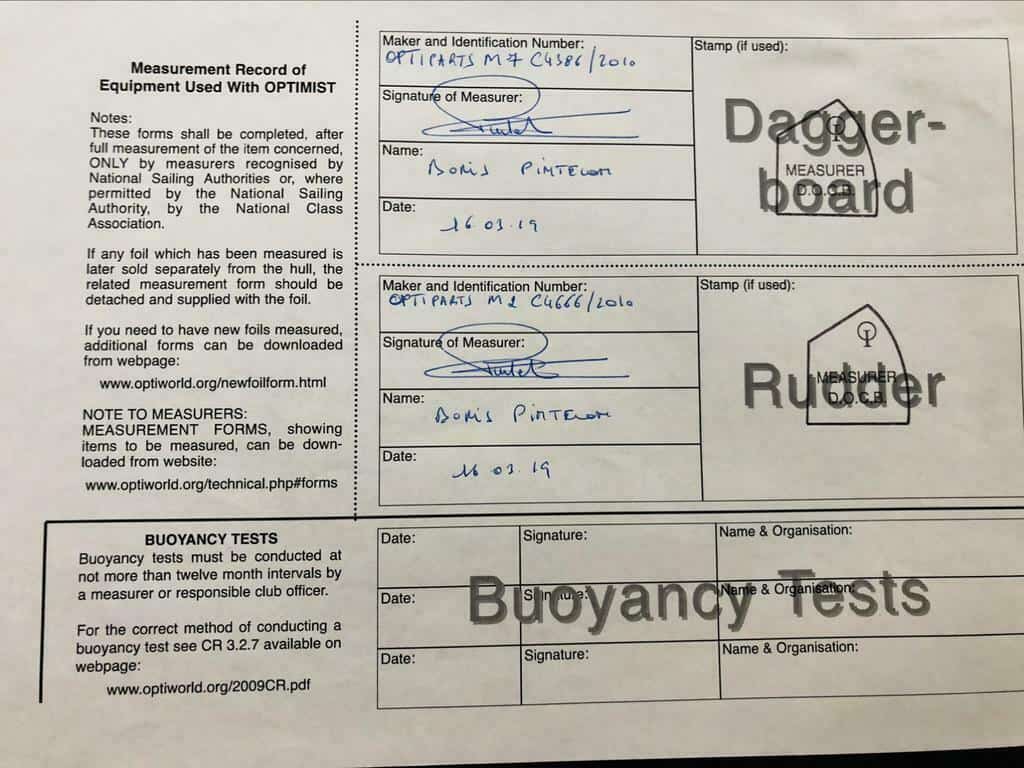 Measurement Record of
Equipment Used With OPTIMIST
Notes:
These forms shall be completed, after
full measurement of the item concerned,
ONLY by measurers recognised by
National Sailing Authorities or, where
permitted by the National Sailing
Authority, by the National Class
Association.
If any foil which has been measured is
later sold separately from the hull, the
related measurement form should be
detached and supplied with the foil.
If you need to have new foils measured,
additional forms can be downloaded
from webpage:
www.optiworld.org/newfoilform.html
NOTE TO MEASURERS:
MEASUREMENT FORMS, showing
items to be measured, can be down-
loaded from website:
www.optiworld.org/technical.php#forms
Maker and Identification Number:
OPTIPARTS M7 C4386/2010
Signature of Measurer:
Name:
BORIS PINTELON
Date:
16 03.19
Stamp (if used):
Dagger-
board
MEASURER
D.O.C.B.
Maker and Identification Number:
OPTIPARTS M2 C4666/2010
Signature of Measurer:
Name:
BORIS PINTELON
Date:
16 03.19
Stamp (if used):
Rudder
MEASURER
D.O.C.B.
BUOYANCY TESTS
Buoyancy tests must be conducted at
not more than twelve month intervals by
a measurer or responsible club officer.
For the correct method of conducting a
buoyancy test see CR 3.2.7 available on
webpage:
www.optiworld.org/2009CR.pdf
Buoyancy Tests
Date: Signature: Name & Organisation:
Date: Signature: Name & Organisation:
Date: Signature: Name & Organisation: